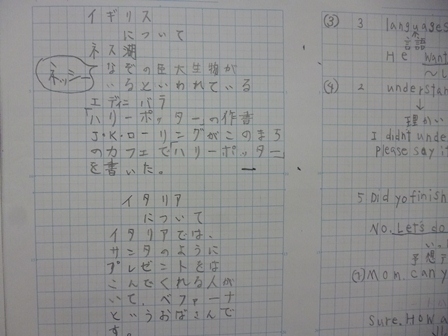 イギリス
について
ネス湖
ネッシー
なぞの巨大生物が
いるといわれている
エディンバラ
「ハリーポッター」の作者
J・K・ローリングがこのまち
のカフェで「ハリーポッター」
を書いた。
イタリア
について
イタリアでは、
サンタのように
プレゼントをは
こんでくれる人が
いて、ベファーナ
というおばさんで
す。
(3) 3 languages
言語
He want
(4) 2 understan
理かい
I didnt unde
please say i
5 Did yo finish
No. Let's do
い。
予想
(7) Mom. can y
Sure. How a